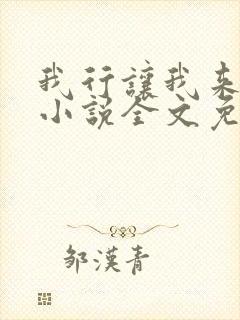 我行讓我来
小說全文免
鄒漢青